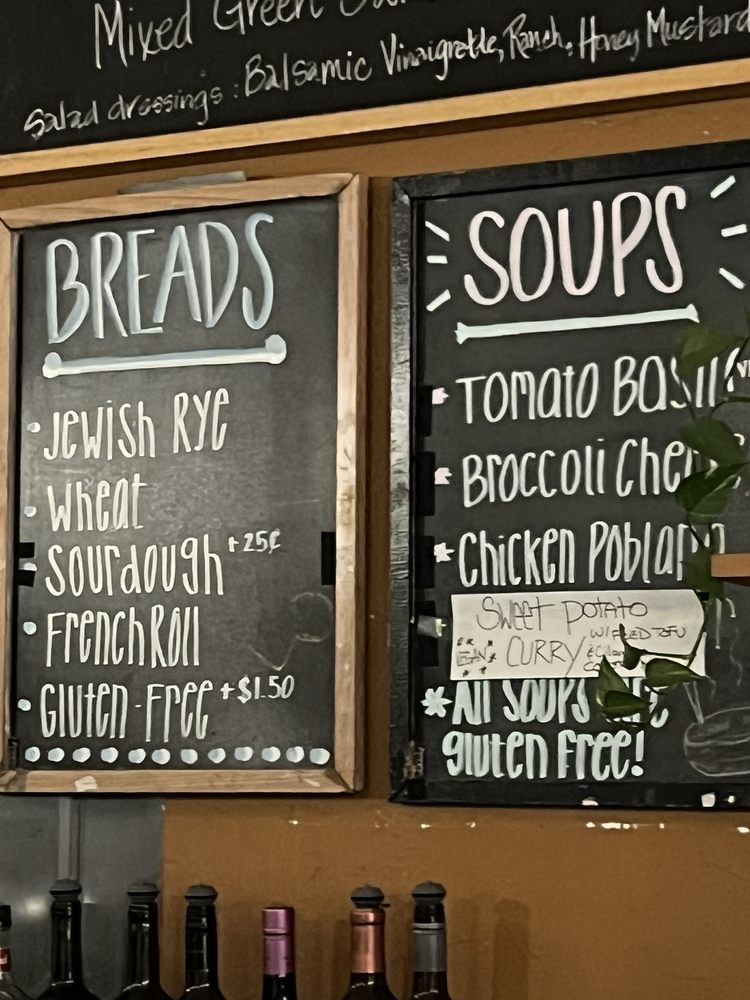 Mixed Green
Salad dressings: Balsamic Vinaigrette, Ranch, Honey Mustard
BREADS
Jewish Rye
Wheat
Sourdough +25¢
French Roll
Gluten-Free +$1.50
SOUPS
Tomato Basil
Broccoli
Chicken
Sweet Potato
CURRY
W/ FRIED TOFU
All Soups
gluten free!